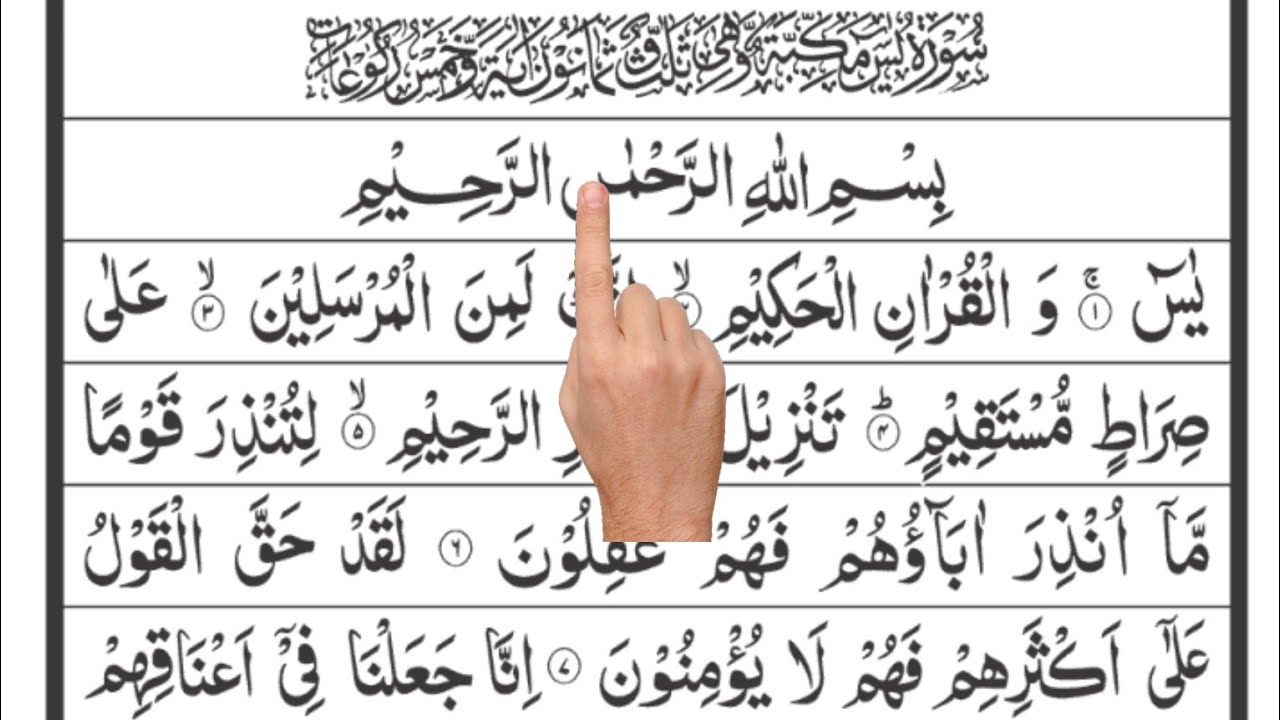 سُوْرَةُ يٰسٓ مَكِّيَّةٌ وَّهِيَ ثَلٰثٌ وَّثَمَانُوْنَ اٰيَةً وَّخَمْسُ رُكُوْعَاتٍ
بِسْمِ اللّٰهِ الرَّحْمٰنِ الرَّحِيْمِ
يٰسٓ ۚ﴿۱﴾ وَ الْقُرْاٰنِ الْحَكِيْمِ ۙ﴿۲﴾ لَمِنَ الْمُرْسَلِيْنَ ۙ﴿۳﴾ عَلٰى
صِرَاطٍ مُّسْتَقِيْمٍ ؕ﴿۴﴾ تَنْزِيْلَ الرَّحِيْمِ ۙ﴿۵﴾ لِتُنْذِرَ قَوْمًا
مَّاۤ اُنْذِرَ اٰبَآؤُهُمْ فَهُمْ غٰفِلُوْنَ ﴿۶﴾ لَقَدْ حَقَّ الْقَوْلُ
عَلٰۤى اَكْثَرِهِمْ فَهُمْ لَا يُؤْمِنُوْنَ ﴿۷﴾ اِنَّا جَعَلْنَا فِيْۤ اَعْنَاقِهِمْ